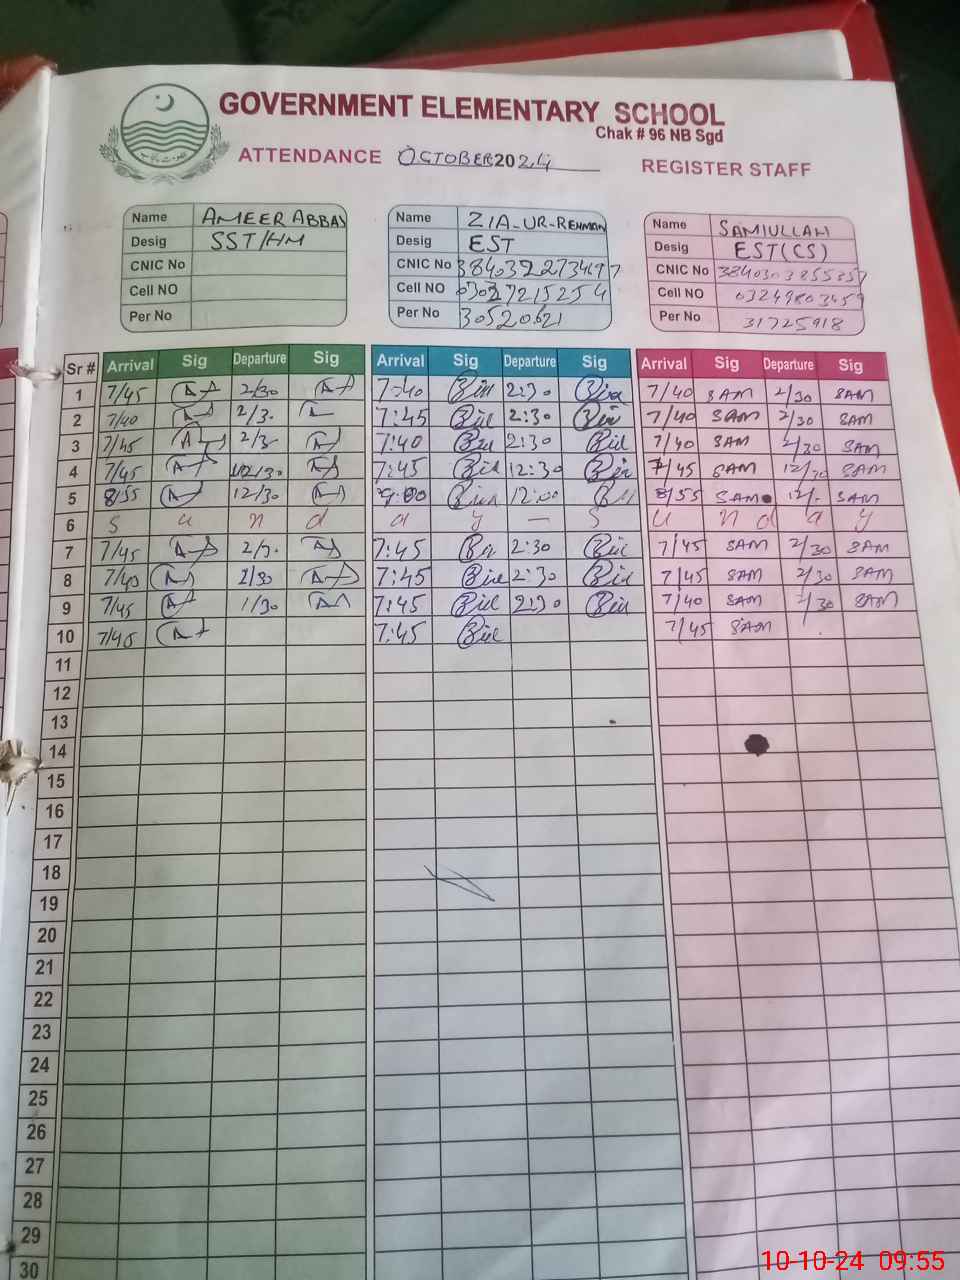 GOVERNMENT ELEMENTARY SCHOOL
Chak # 96 NB Sgd
ATTENDANCE OCTOBER 2024 REGISTER STAFF
Name AMEER ABBAS
Desig SST/HM
CNIC No
Cell NO
Per No
Name ZIA-UR-REHMAN
Desig EST
CNIC No
Cell NO 03027215254
Per No 30520621
Name SAMIULLAH
Desig EST(CS)
CNIC No
Cell NO 03249803459
Per No 31725918
Sr # Arrival Sig Departure Sig Arrival Sig Departure Sig Arrival Sig Departure Sig
1 7/45 2/30 7:40 2:30 7/40 SAM 2/30 SAM
2 7/40 2/3. 7:45 2:30 7/40 SAM 2/30 SAM
3 7/45 2/3. 7:40 2:30 7/40 SAM 2/30 SAM
4 7/45 12/30 7:45 12:30 7/45 SAM 12/30 SAM
5 8/55 12/30 9:00 12:00 8/55 SAM 12/. SAM
6 S u n d a y — S u n d a y
7 7/45 2/3. 7:45 2:30 7/45 SAM 2/30 SAM
8 7/40 2/30 7:45 2:30 7/45 SAM 2/30 SAM
9 7/45 1/30 7:45 2:30 7/40 SAM 2/30 SAM
10 7/45 7:45 7/45 SAM
11
12
13
14
15
16
17
18
19
20
21
22
23
24
25
26
27
28
29
30
10-10-24 09:55